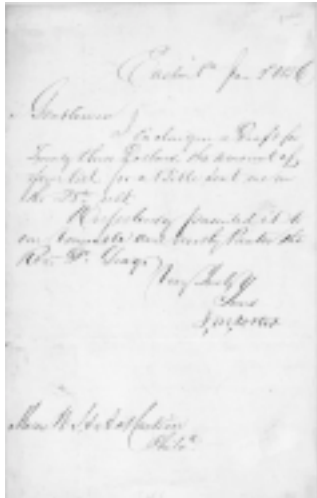 Easton Pa Jan 2 1856
Gentlemen
I enclose you a Draft for
Twenty three Dollars the amount of
your bill for a Bible sent me on
the 25th ult
presented it to
our and worthy Pastor the
Revd Dr. Gray
Very truly Yr
J. M. Porter
Messrs W. S. & A. Martien
Philada